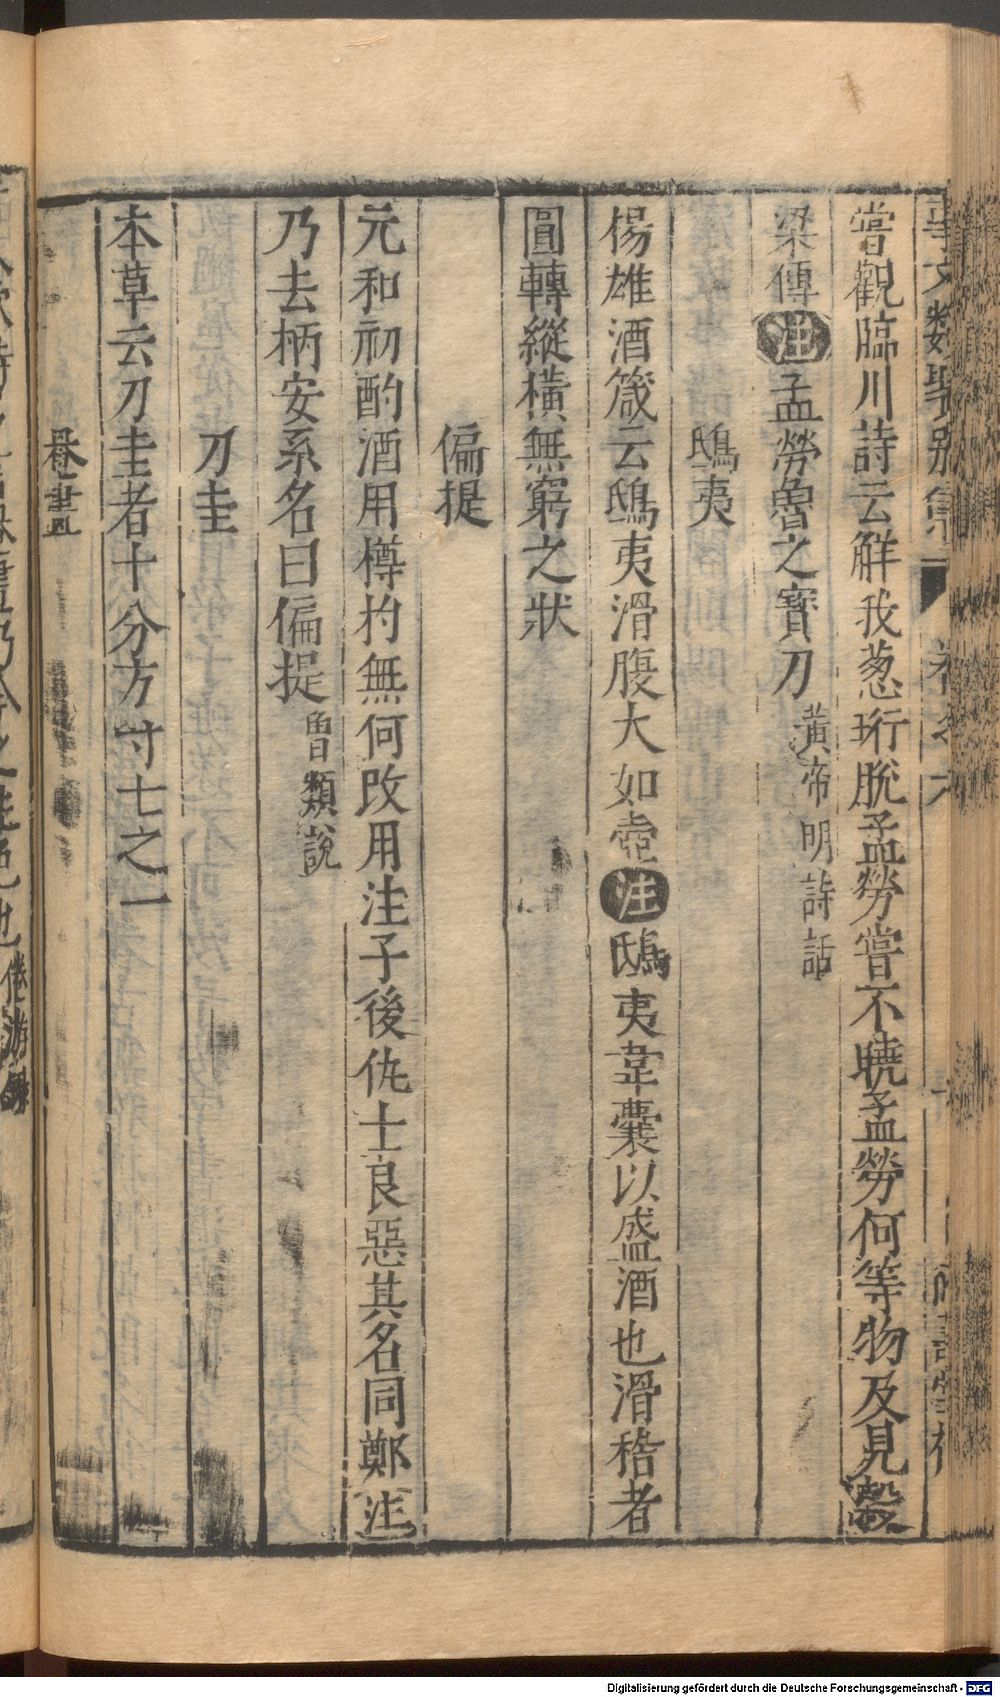 嘗觀臨川詩云解我葱珩脫孟勞嘗不曉孟勞何等物及見穀
梁傳注孟勞魯之寳刀黃帝明詩話
鴟夷
楊雄酒箴云鴟夷滑腹大如壺注鴟夷韋囊以盛酒也滑稽者
圓轉縱橫無窮之狀
偏提
元和初酌酒用樽杓無何改用注子後仇士良惡其名同鄭注
乃去柄安系名曰偏提魯類說
刀圭
本草云刀圭者十分方寸七之一
Digitalisierung gefördert durch die Deutsche Forschungsgemeinschaft - DFG